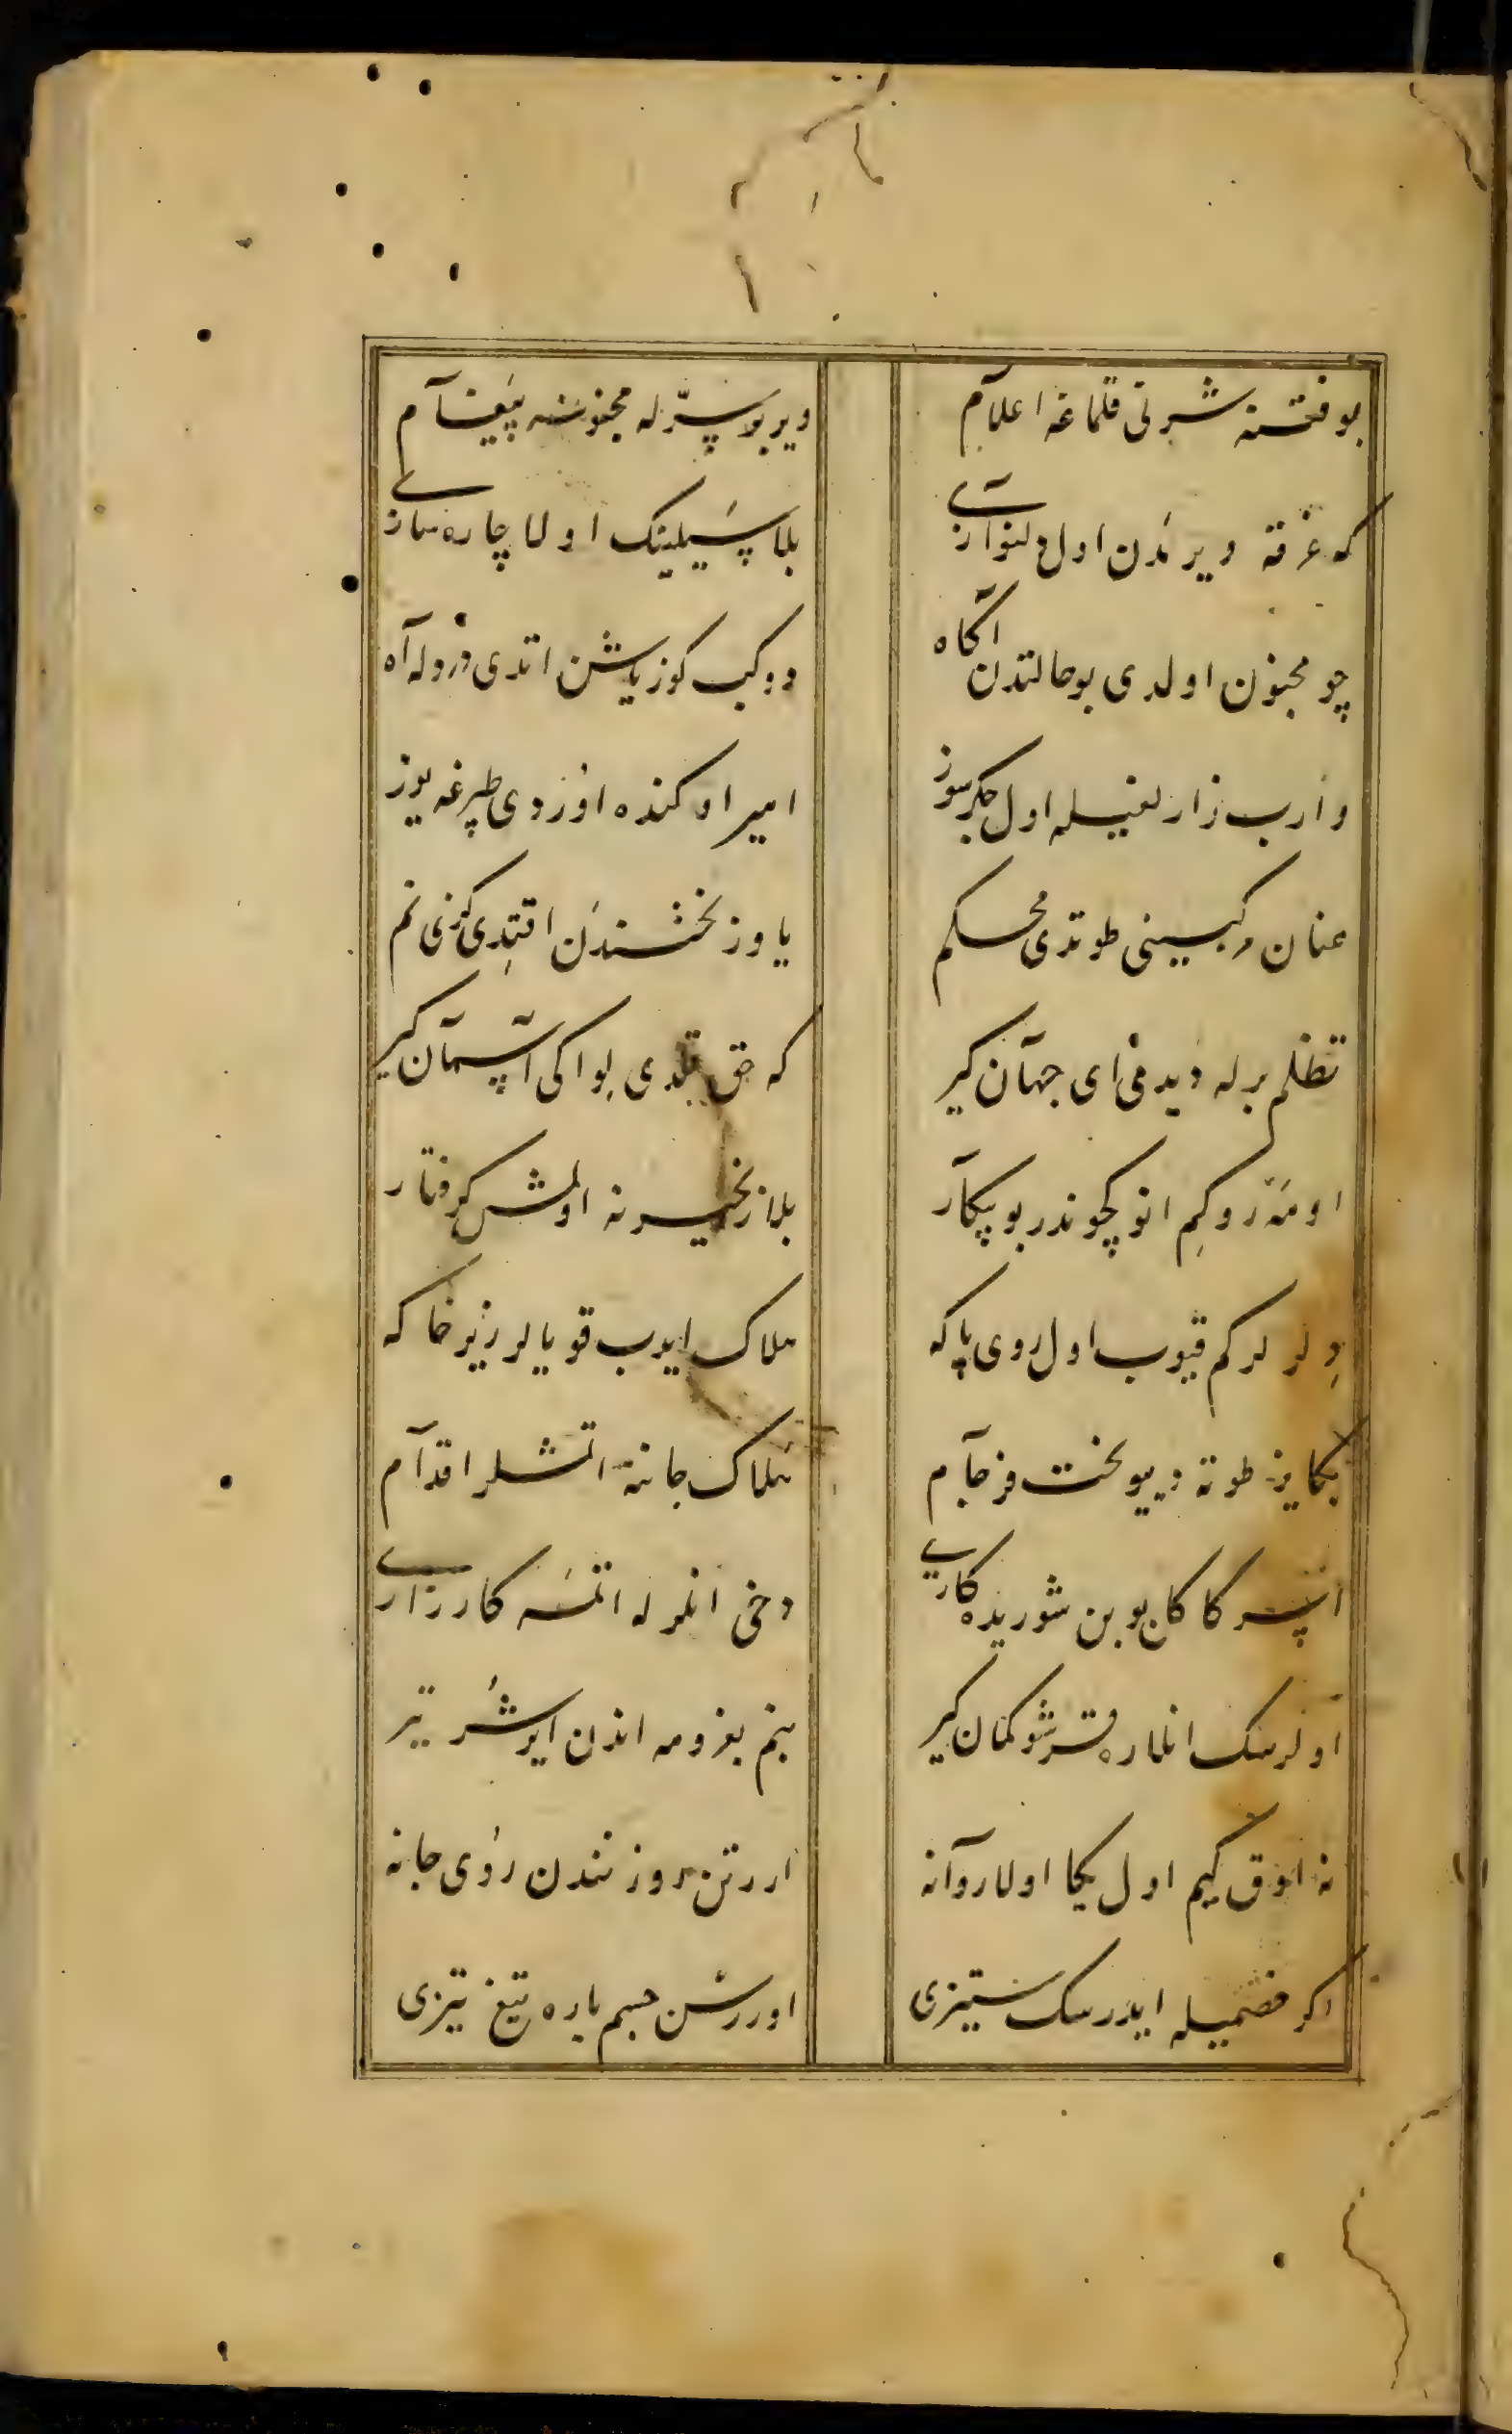 بو فتنه شرنی قلماغه اعلام ویر بو سرّله مجنونه پیغام
که غرقه ویرمدن اول دلنوازی بلا سیلینک اولا چاره سازی
چو مجنون اولدی بو حالتدن آگاه دوکب کوز یاشن اتدی درد له آه
وارب زارلغیله اول جکرسوز امیر اوکنده اوردی طپرغه یوز
عنان و رکبینی طوتدی محکم یاوز بخشندن اقتدی کوزی نم
تظلم برله دیدی ای جهان کیر که حق قلدی لواکی آسمان کیر
اومه رو کم انوکچوندر بو پیکار بلا زنجیرنه اولمش کرفتار
دلرلر کم قیوب اول روی پاکه هلاک ایدب قویالر زیر خاکه
بکا یوز طوته دیو بخت فرجام هلاک جانه اتمشلر اقدام
اسرکا کان بو بن شوریده کاری دخی انلرله اتمه کارزاری
اولرسک انلاره قرشو کمان کیر بنم بغرومه اندن ایرشر تیر
نه اوق کیم اول یکا اولا روانه ارر تن روزنندن روی جانه
اکر خصمیله ایدرسک ستیزی اوررسن جسم یاره تیغ تیزی